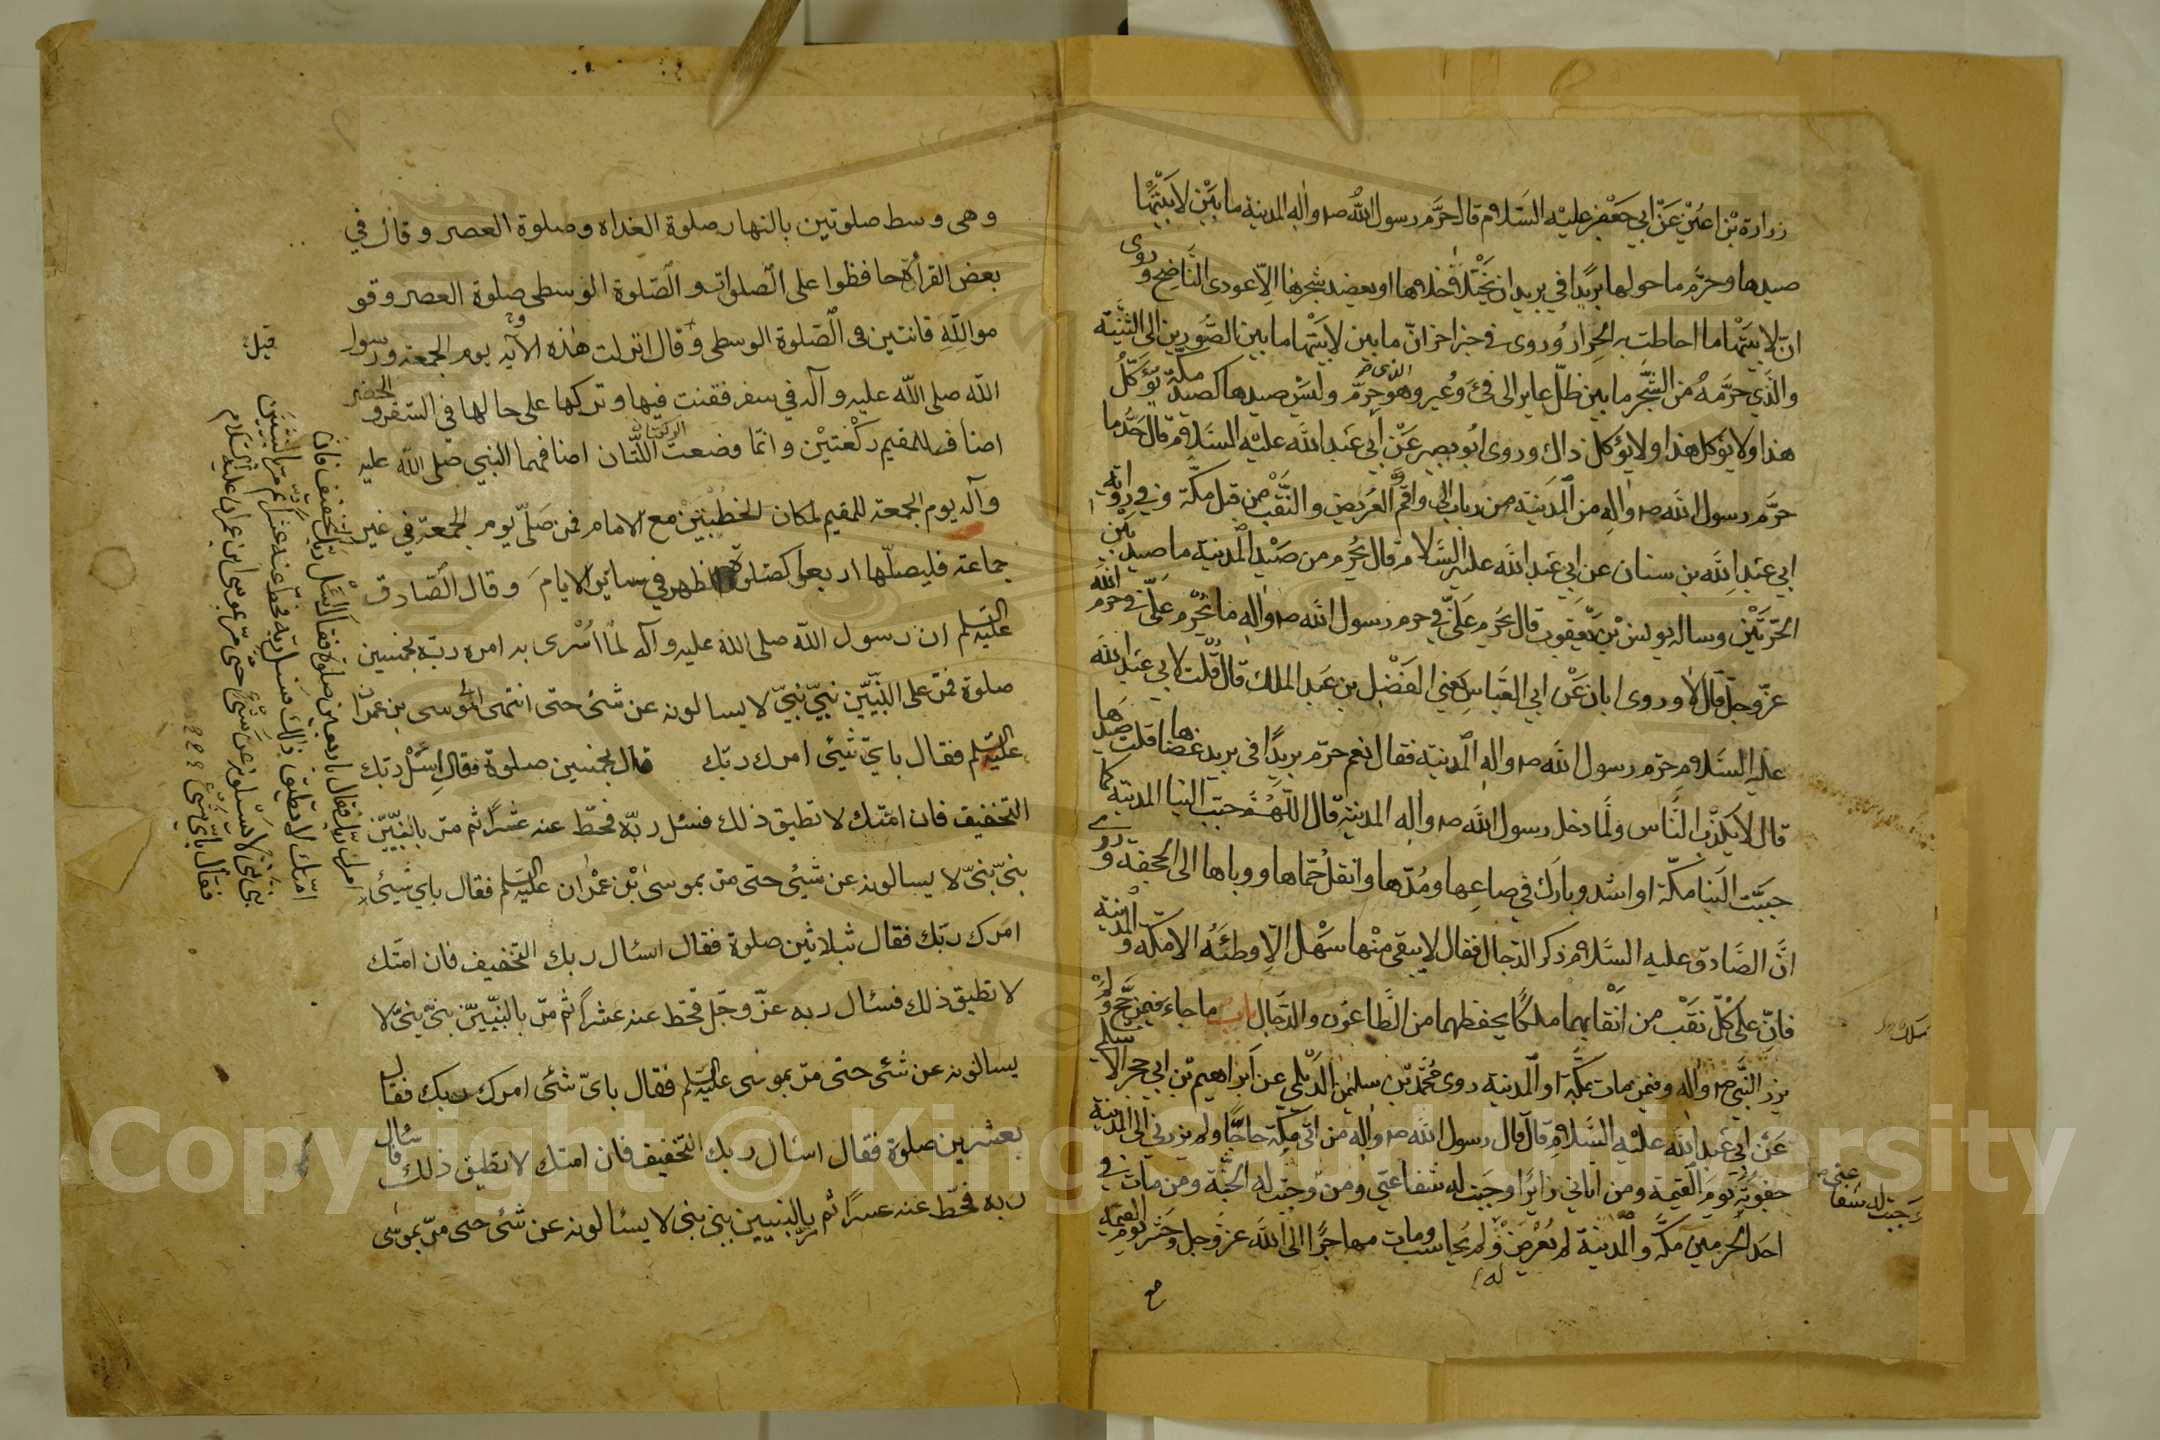 زرارة بْن اعْيَن عَنْ ابي جَعْفر عليْه السّلام قال حرّم رسول الله ص واله المدينة ما بيْن لابَتَيْها
صيدها وحرّم ما حولها بريدًا في بريد ان يختلا خلاها او يعضد شجرها الاّ عودى النّاضح وروى
انّ لابتيْها ما احاطت به الحِرار وروى في خبر اخر انّ ما بين لابتيْها ما بين الصّورين الى الثنيّة
والّذي حرّمه من الشّجر ما بين ظلّ عاير الى فئ وُعير وهو الذي حرّم وليْس صيدها كصيد مكّة يؤكل
هذا ولا يؤكل هذا ولا يؤكل ذاك وروى ابُو بصير عَنْ ابي عَبد الله عليْه السّلام قال حَدُّ ما
حرّم رسول الله ص واله من المدَينة من رباب الى واقم والعُرَيض والنّقْب من قبل مكّة وفي رواية
ابي عَبد الله بن سنان عن ابي عَبد الله عليه السّلام قال يحرُم من صَيْد المدينة ما صيد بَيْن
الحَرّتَيْن وساله يونس بْن يَعقوب قال يحرم عَلَىّ في حرم رسول الله ص واله ما يحْرم علىّ في حرم الله
عزّ وجلّ قال لا وروى ابان عَنْ ابي العَبّاس يَعني الفَضْل بن عَبد الملك قال قلْت لابي عَبد الله
عليه السّلام حرّم رسول الله ص واله المدينة فقال نعم حرّم بريدًا في بريد غضاها قلت صيدها
قال لا يَكذْب النّاس ولمّا دخل رسول الله ص واله المدينة قال اللّهُمّ حبّب الينا المدينة كما
حببّت الَينا مكّة او اشد وبارك في صاعها ومُدّها وانقل حُمّاها ووباها الى الجحفة وروى
انّ الصّادق عليه السّلام ذكر الدّجال فقال لا يبقى منْها سَهْل الاّ وطئَهُ الا مكّة والمدينة
فانّ علىٰ كلّ نقْب من انْقابهما ملكًا يحفظهما من الطّاعوُن والدّجال باب ما جاء فيمن حجّ ولم
يزر النّبي ص واله وفيمن مات بمكّة او المدينة روى مُحمّد بْن سليمٰن الدّيْلمي عن ابراهيم بن ابي حجر الاسلمي
عَنْ ابي عَبد الله عليْه السّلام قال قال رسول الله ص واله من اتىٰ مكّة حاجًّا ولم يزرني الى المدينة
جفوتُه يَوم القيمة ومن اتاني زايرًا وجبت له شفاعتي ومن وجبت له شفاعتي وجبَت له الجنّة ومن مات في
احَد الحرمين مكّة والمدينة لم يُعْرَض ولم يُحاسب ومات مهاجرًا الى الله عزّ وجل وحشر يوم القيمة
وهى وسط صلوتين بالنهار صلوة الغداه وصلوة العصر وقال في
بعض القرأة حافظوا على الصّلوات والصّلوة الوسطى صلوة العصر وقو
موا للّٰهِ قانتين فى الصّلوة الوسطى وقال انزلت هٰذه الآيه يوم الجمعة ورسول
الله صلى الله عليه وآله في سفر فقنت فيها وتركها على حالها في السّفر والحضر
اضاف للمقيم ركْعتيْن وانّما وضعت الركعتان اللّتان اضافهما النبي صلّى الله عليه
وآله يوم الجمعة للمقيم لمكان الخطبتيْن مع الامام فمن صَلّى يوم الجمعة في غير
جماعة فليصلّها اربعا كصلوة الظهر في سائر الايام وقال الصّادق
عليه السّلم ان رسول الله صلى الله عليه وآله لمّا اُسْرى به امره ربّه بخمسين
صلوة فمرّ على النّبيّين نبيّ نبيّ لا يسالونه عن شئ حتى انتهى الى موسى بن عمران
عليه السّلم فقال بايّ شئ امرك ربّك قال بخمسين صلوة فقال اسئل ربّك
التخفيف فان امّتك لا تطيق ذلك فسئل ربّه فحطّ عنه عشرًا ثم مرّ بالنّبيّين
نبىّ نبىّ لا يسالونه عن شئ حتى مرّ بموسىٰ بْن عمْران عليه السّلم فقال باي شئ
امَرك ربّك فقال بثلاثين صلوة فقال اسئال ربك التخفيف فان امتك
لا تطيق ذلك فسئال ربه عزّ وجّل فحّط عنه عشراً ثم مرّ بالنّبيّين نبىّ نبىّ لا
يسالونه عن شئ حتى مرّ بموسى عليه السّلم فقال باىّ شئ امرك ربك فقال
بعشرين صلوة فقال اسئال ربك التخفيف فان امتك لا تطيق ذلك فسئال
ربه فحّط عنه عشرًا ثم مرّ بالنبيين نبى نبى لا يسئالونه عن شئ حتى مرّ بموسى
امرك ربّك فقال باربعين صلوة فقال اسئل ربّك التخفيف فان
امّتك لا تطيق ذلك فسئل ربّه فحّط عنه عشرًا ثم مرّ بالنبيّين
نبى نبى لا يسْئلونه عن شئ حتى مرّ بموسى ابن عمران عليه السّلام
فقال باىّ شئ